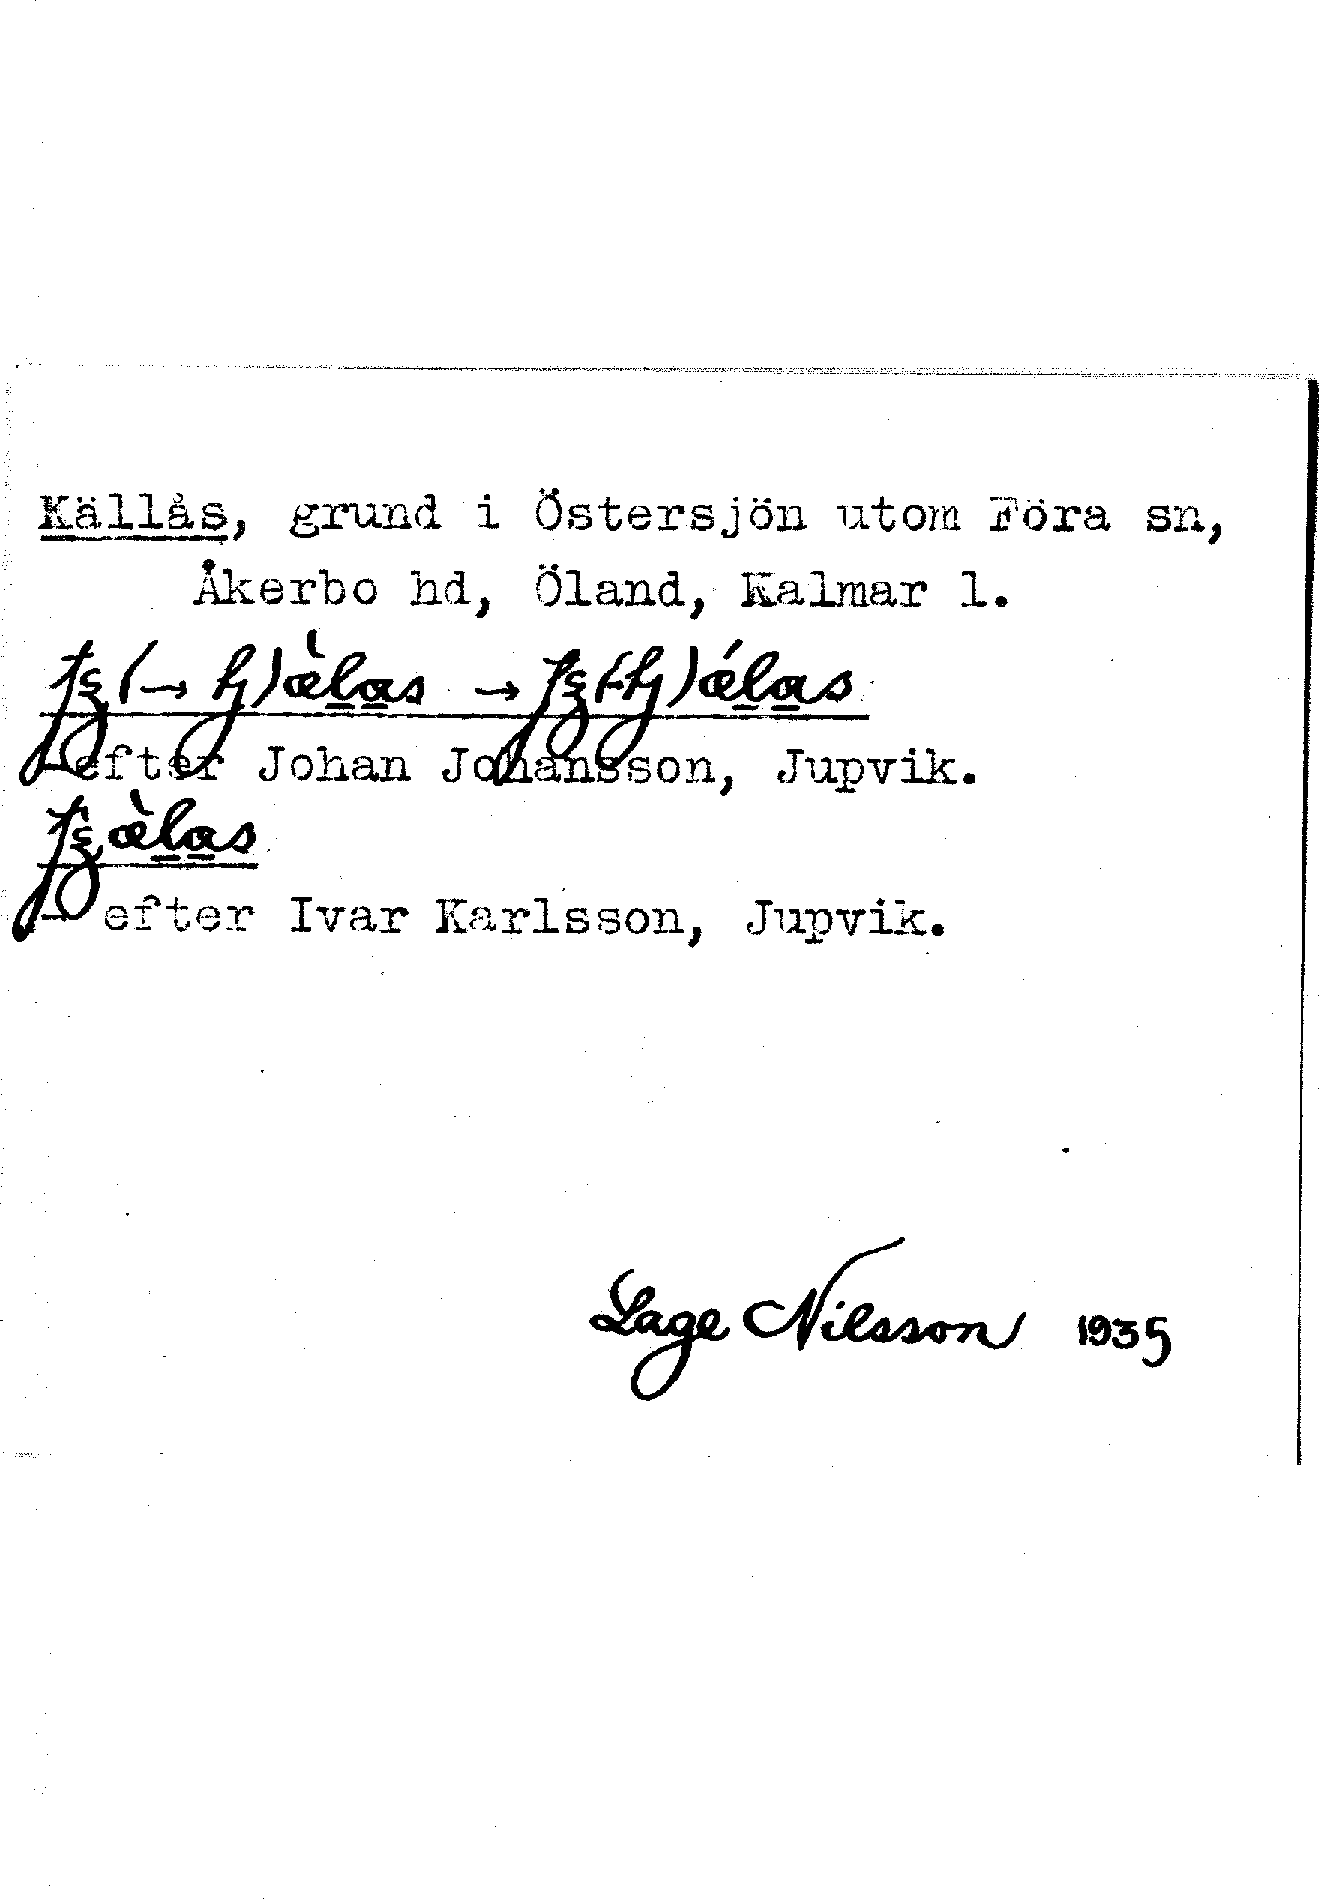 Källås, grund i Östersjön utom Föra sn,
Åkerbo hd, Öland, Kalmar l.
- efter Johan Johansson, Jupvik.
- efter Ivar Karlsson, Jupvik.
Lage Nilsson 1935